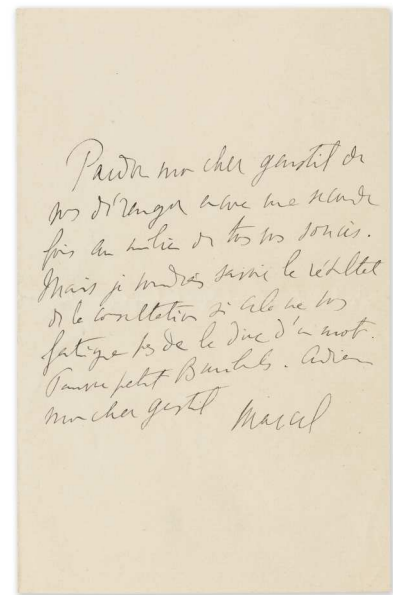 Pardon mon cher genstil de
vous déranger encore une seconde
fois au milieu de tous vos soucis.
Mais je voudrais savoir le résultat
de la consultation si cela ne vous
fatigue pas de le dire d'un mot.
Pauvre petit Adieu
mon cher genstil Marcel